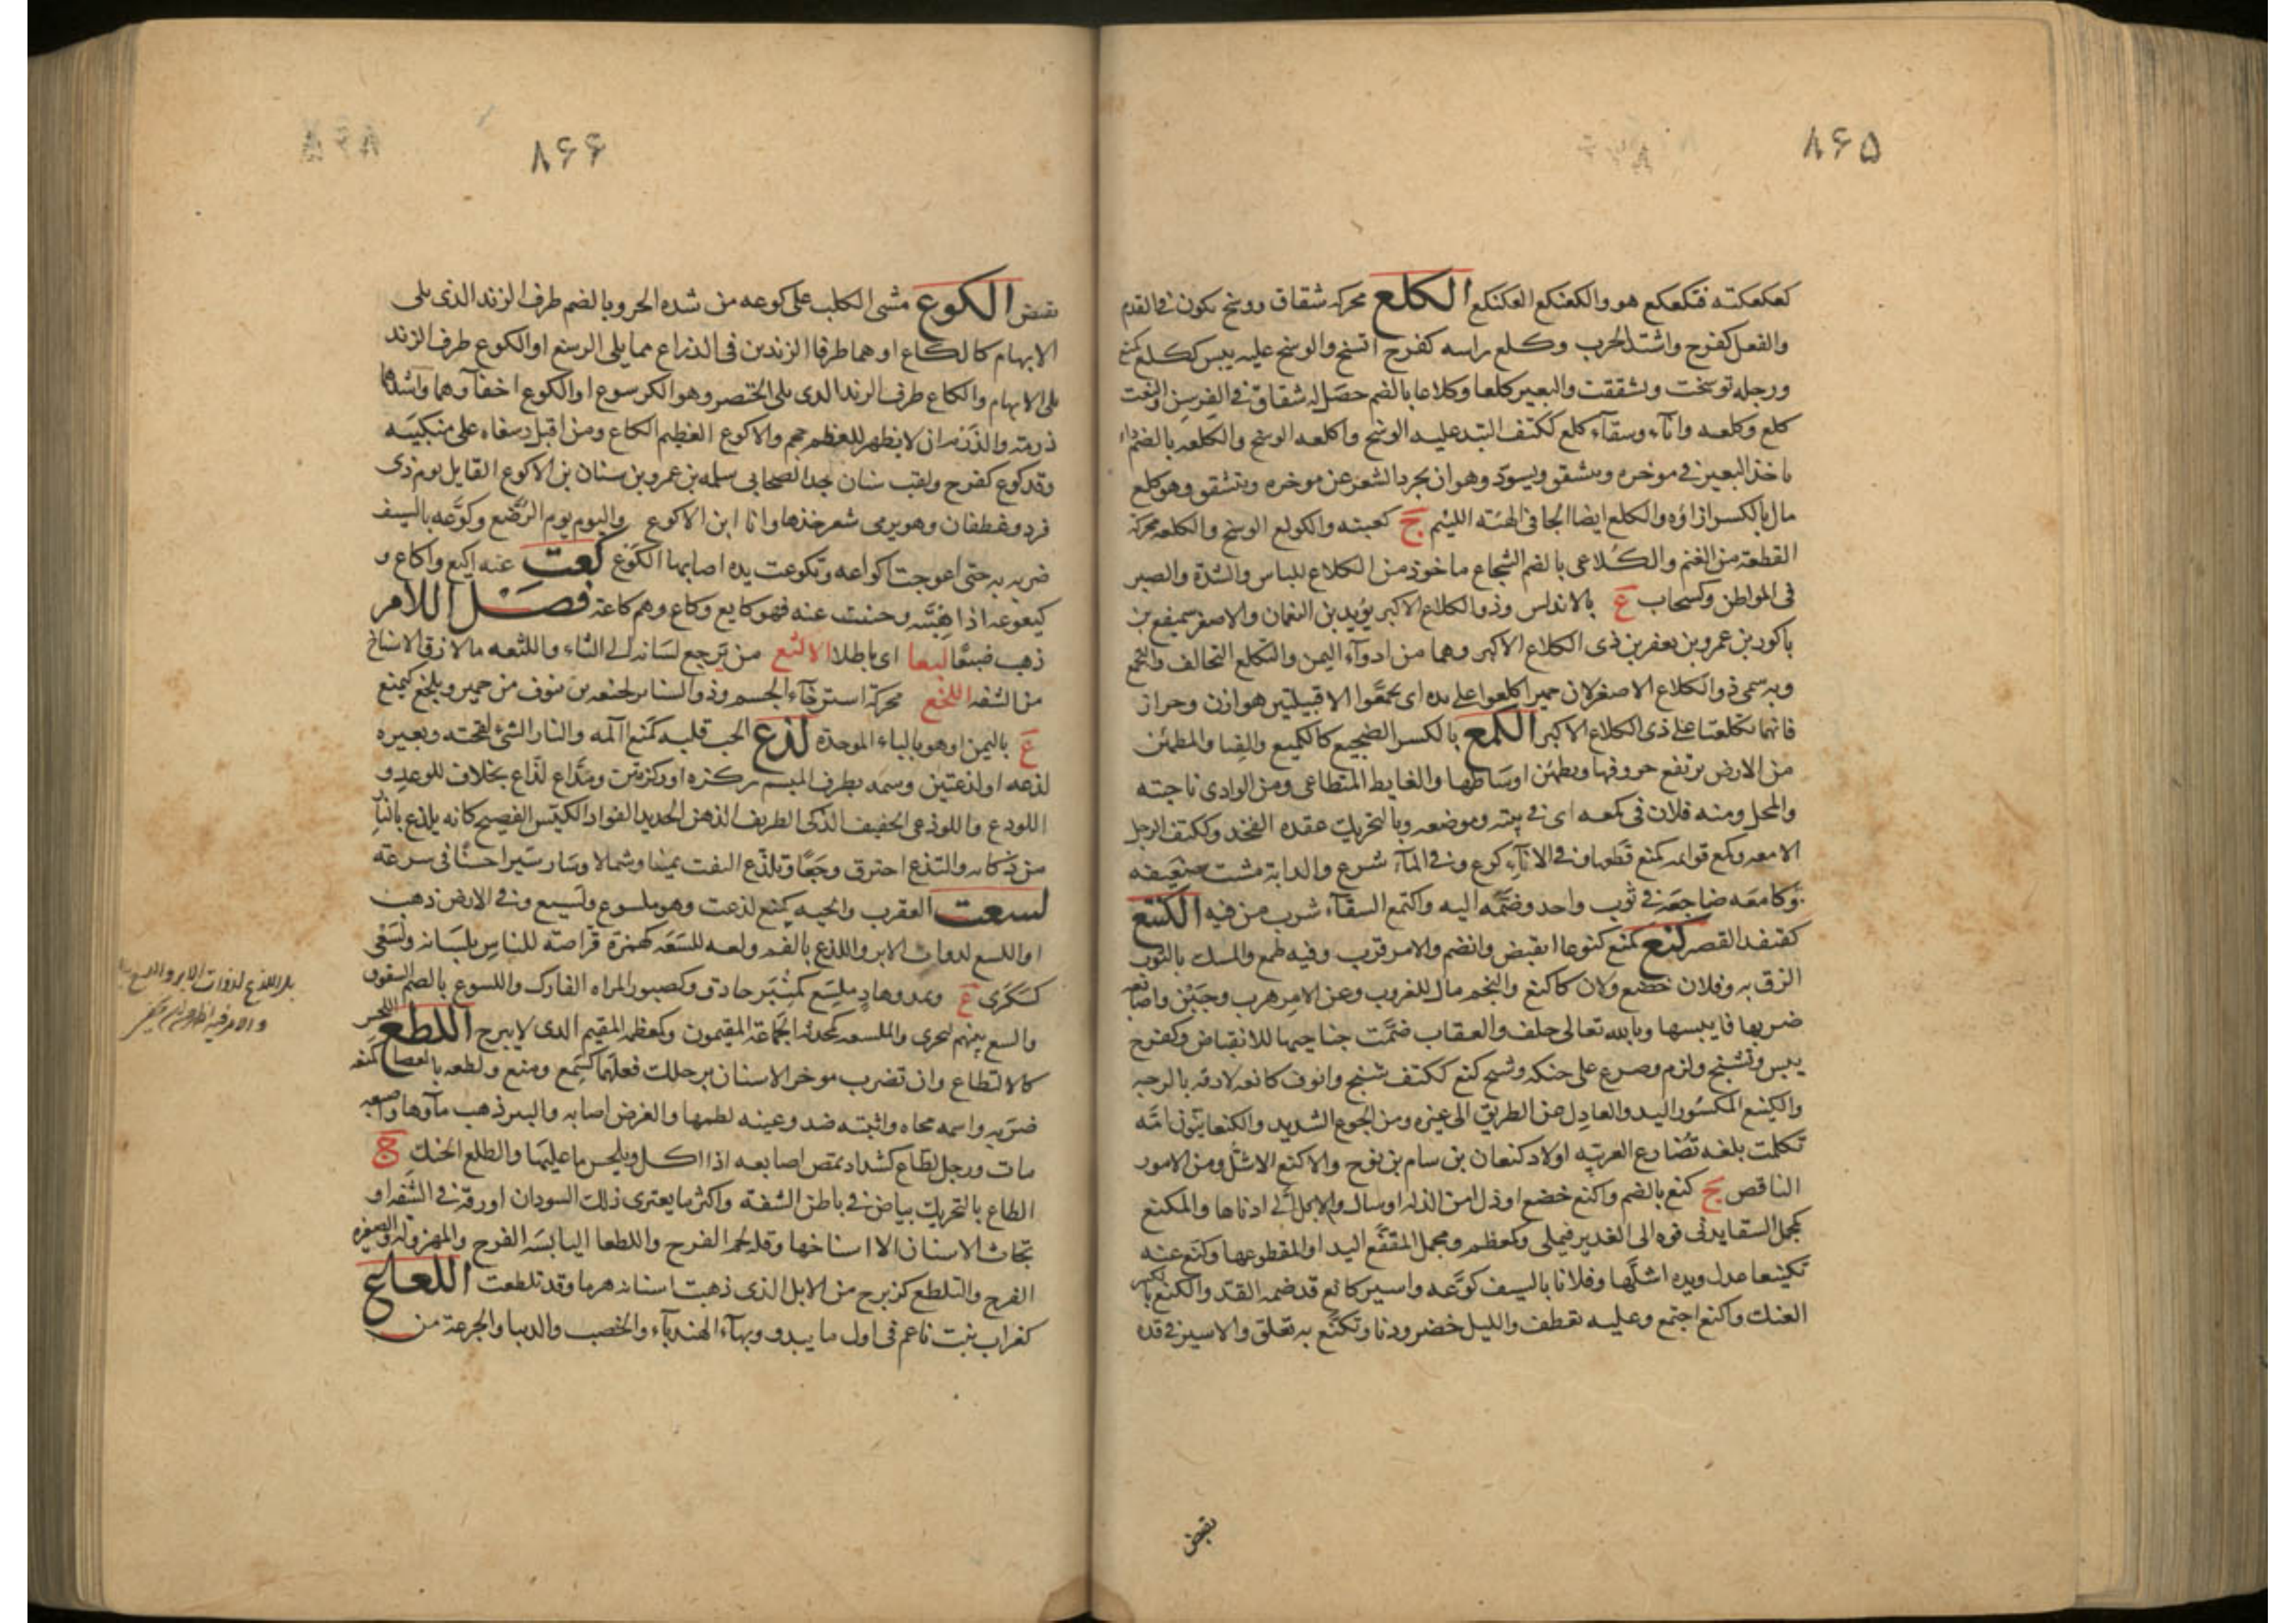 ٨۶۵
كعكعكته فتكعكع هو والكعنكع العكنكع الكلع محركه شقاق ووسخ يكون فى القدم
والفعل كفرح واشتد الجرب وكلع راسه كفرح اتسخ والوسخ عليه يبس ككلع كمنع
ورجله توسخت وتشققت والبعير كلعا وكلاعا بالضم حصل له شقاق فى الفرسن والنعت
كلع وكلعه واناء وسقآء كلع ككتف التبد عليه الوسخ واكلعه الوسخ والكلعه بالضم داء
ياخذ البعير فى موخره ويتشقق ويسود وهو ان يجرد الشعر عن موخره ويتشقق وهو كلع
مال بالكسر ازاؤه والكلع ايضا الجافى الهيئه اللئيم ج كعبته والكولع الوسخ والكلعه محركة
القطعة من الغنم والكلاعى بالضم الشجاع ماخوذ من الكلاع للباس والشدة والصبر
فى المواطن وكسحاب ع بالاندلس وذو الكلاع الاكبر يزيد بن النعمان والاصغر سميفع بن
باكور بن عمرو بن يعفر بن ذى الكلاع الاكبر وهما من ادوآء اليمن والتكلع التحالف والتجمع
وبه سمى ذو الكلاع الاصغر لان حمير اكلعوا على يده اى تجمعوا الا قبيلتين هوازن وحراز
فانهما تكلعتا على ذى الكلاع الاكبر الكمع بالكسر الضجيع كالكميع والفبا والمطمئن
من الارض يرتفع حروفها ويطمئن اوساطها والغايط المتطاعى ومن الوادى ناحيته
والمحل ومنه فلان فى كمعه اى فى بيته وموضعه وبالتحريك عقده الفخذ وككتف الرجل
الامعه وكمع قوايمه كمنع قطعها وفى الانآء كرع وفى المآء شرع والدابة مشت ضعيفه
وكامعه ضاجعه فى ثوب واحد وضمه اليه واكتمع السقآء شرب من فيه الكنتع
كقنفد القصير كنع كمنع كنوعا انقبض وانضم والامر قرب وفيه طمع والمسك بالثوب
الزق به وفلان خضع ولان كاكنع والنجم مال للغروب وعن الامر هرب وجبن واصابعه
ضربها فايبسها وبالله تعالى حلف والعقاب ضمت جناحيها للانقضاض وكفرح
يبس وتشنج ولزم وصرع على حنكه وشيح كنع ككتف شنج وانوف كانعه لازقه بالوجه
والكنيع المكسور اليد والعادل عن الطريق الى غيره ومن الجوع الشديد والكنعانيون امة
تكلمت بلغه تضارع العربيه اولاد كنعان بن سام بن نوح والاكنع الاشل ومن الامور
الناقص ج كنع بالضم واكنع خضع او ذل من الذلة او سال والابل الى ادناها والمكنع
كمجمل السقا يدنى فوه الى الغدير فيملى وكعظم ومجمل المقفع اليد او المقطوعها وكنع عنه
تكنيعا عدل ويده اشلها وفلانا بالسيف كوعه واسير كانع قد ضمه القد والكنع بالكسر
العنك واكتنع اجتمع وعليه تعطف والليل حضر ودنا وتكنع به تعلق والاسير فى قده
تقبض
٨۶۶
تقبض الكوع مشى الكلب على كوعه من شده الحر وبالضم طرف الزند الذى يلى
الابهام كالكاع او هما طرفا الزندين فى الذراع مما يلى الرسغ او الكوع طرف الزند
يلى الابهام والكاع طرف الزند الذى يلى الخنصر وهو الكرسوع او الكوع اخفآهما واشدهما
ذرمه والدرم ان لا يظهر للعظم حجم والاكوع العظيم الكاع ومن اقبل رسغاه على منكبيه
وقد كوع كفرح ولقب سنان جد الصحابى سلمه بن عمرو بن سنان بن الاكوع القايل يوم ذى
قرد وغطفان وهو يرمى شعر خذها وانا ابن الاكوع واليوم يوم الرضع وكوعه بالسيف
ضربه به حتى اعوجت اكواعه وتكوعت يده اصابها الكوع كعت عنه اكيع واكاع و
كيعوعه اذا هبته وجبنت عنه فهو كايع وكاع وهم كاعة فصل اللام
ذهب ضيعا لبعا اى باطلا الالثع من يرجع لسانه الى الثاء واللثعه ما لازق الاسناخ
من الشفه اللخع محركة استرخآء الجسم وذو الشناتر لخيعه بن ينوف من حمير ويلخع كيمنع
ع باليمن او هو بالباء الموحدة لذع الحب قلبه كمنع المه والنار الشئ لفحته وبعيره
لذعه او لذعتين وسمه بطرف الميسم ركزه او ركزتين ومذاع لذاع بخلاف للوعد و
اللوذع واللوذعى الخفيف الذكى الظريف الذهن الحديد الفواد الكيس الفصيح كانه يلذع بالنار
من ذكائه والتذع احترق وجعا وتلذع التفت يمينا وشمالا وسار سيرا حسنا فى سرعة
لسعت العقرب والحيه كمنع لذعت وهو ملسوع ولسيع وفى الارض ذهب
او اللسع لدوات الابر واللذع بالفم ولعه للسعه كهمزة قراصة للناس بلسانه ولسعى
كسكرى ع وهاد ملسع كمنبر حاذق وكصبور المراه الفارك واللسوع بالضم الشقوق
والسع بينهم اغرى والملسعه كمحدثه الجماعة المقيمون وكعظمه المقيم الذى لا يبرح اللطع اللحس
كالالتطاع وان تضرب موخر الانسان برجلك فعلهما كسمع ومنع ولطعه بالعصا كمنعه
ضربه واسمه محاه واثبته ضد وعينه لطمها والغرض اصابه والبير ذهب مآوها واصبعه
مات ورجل لطاع كشداد يمتص اصابعه اذا اكل ويلحس ما عليها والطلع الحنك ج
الطاع بالتحريك بياض فى باطن الشفة واكثر ما يعترى ذلك السودان او رقة فى الشفه او
تحات الاسنان الا اسناخها وقله لحم الفرج واللطعا اليابسه الفرج والمهزوله والصغيره
الفرج والتلطع كزبرج من الابل الذى ذهبت اسنانه هرما وقد تلطعت اللعاع
كغراب نبت ناعم فى اول ما يبدو وبهآء الهندبآء والخصب والدنيا والجرعة من
بل اللذع لذوات الابر واللسع